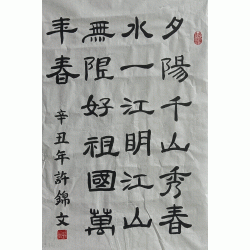 夕陽千山秀春
水一江明江山
無限好祖國萬
年春
辛丑年許錦文